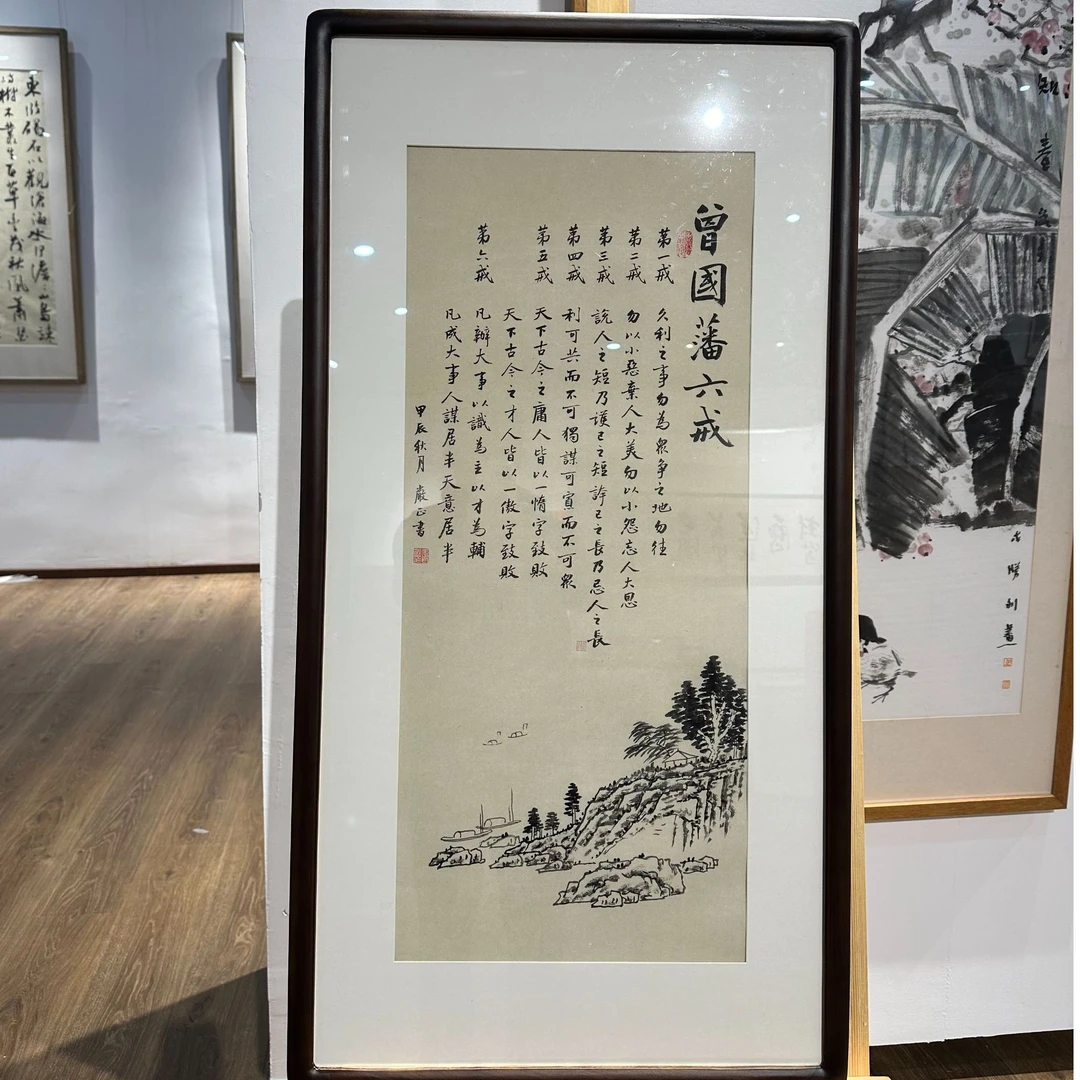 曾國藩六戒
第一戒 久利之事勿為眾爭之地勿往
第二戒 勿以小惡棄人大美勿以小怨忘人大恩
第三戒 說人之短乃護己之短誇己之長乃忌人之長
第四戒 利可共而不可獨謀可寡而不可眾
第五戒 天下古今之庸人皆以一惰字致敗
天下古今之才人皆以一傲字致敗
第六戒 凡辦大事以識為主以才為輔
凡成大事人謀居半天意居半
甲辰秋月 嚴正書
東臨碣石以觀滄海水何澹澹山島竦
峙樹木叢生百草豐茂秋風蕭瑟
勝利畫